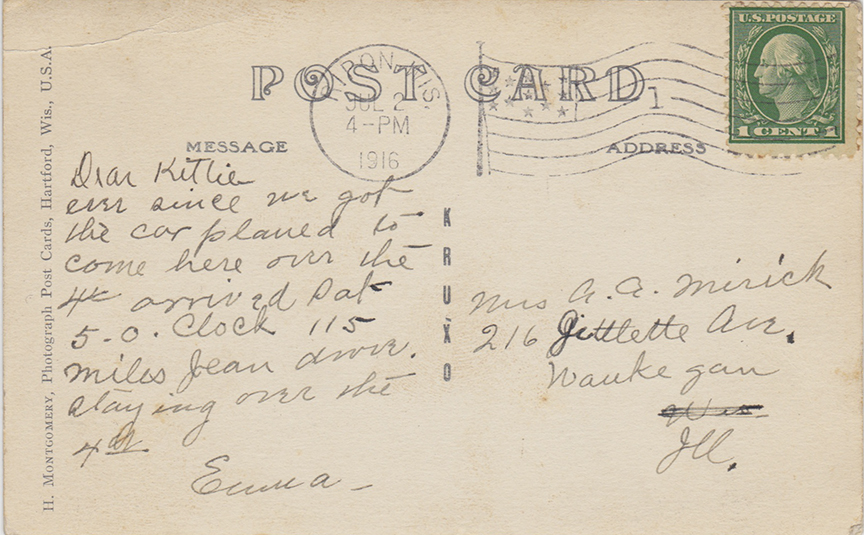 U.S. POSTAGE
1 CENT 1
POST CARD
RIPON, WIS.
JUL 2
4-PM
1916
1
MESSAGE
ADDRESS
H. MONTGOMERY, Photograph Post Cards, Hartford, Wis., U.S.A.
KRUXO
Dear Kittie
ever since we got
the car planed to
come here over the
4th arrived Sat
5-O.Clock 115
miles Jean drove.
staying over the
4th
Emma-
Mrs A. A. Mirick
216 Ave.
Waukegan
Wis
Ill.